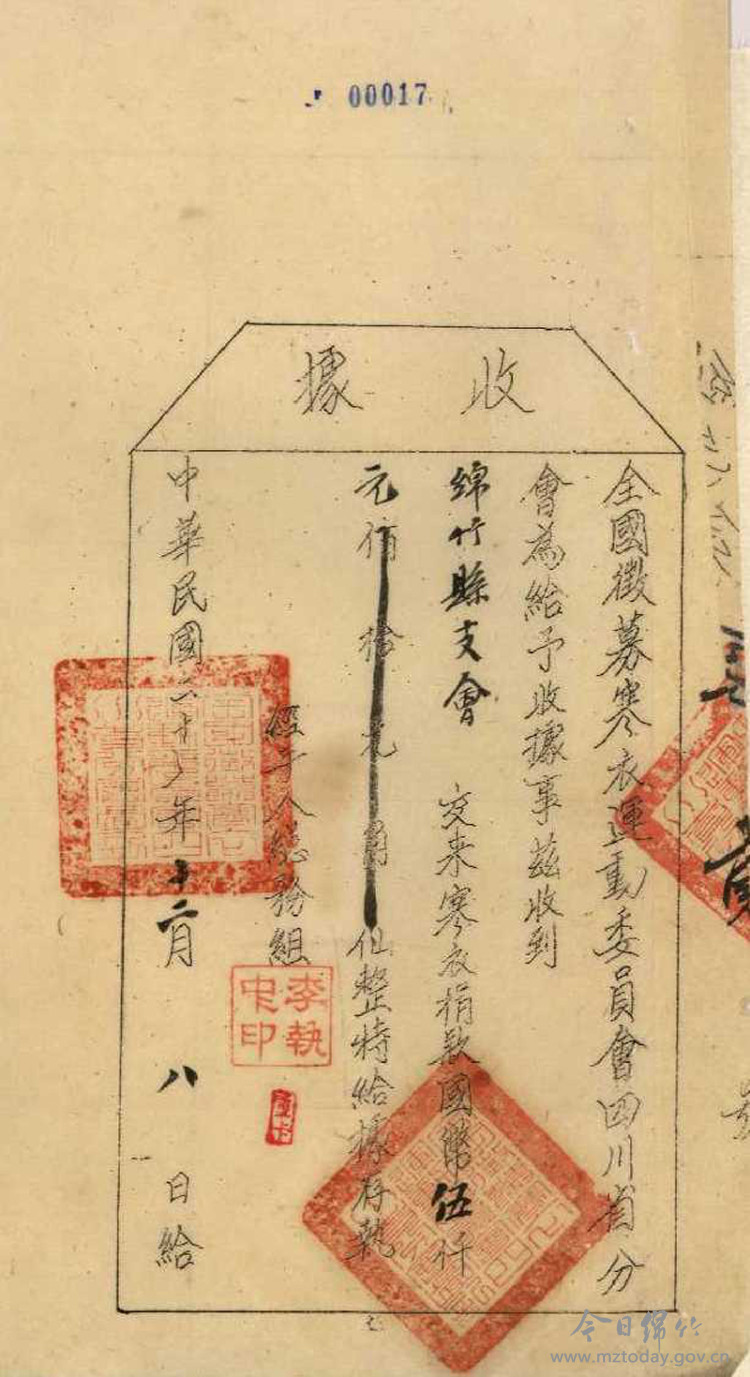 00017
收據
全國徵募寒衣運動委員會四川省分
會為給予收據事茲收到
綿竹縣支會 交来寒衣捐款國幣伍仟
元佰拾元角仙整特給據存執
經手人總務組
李執中印
中華民國二十八年十二月八日給
今日綿竹
www.mztoday.gov.cn